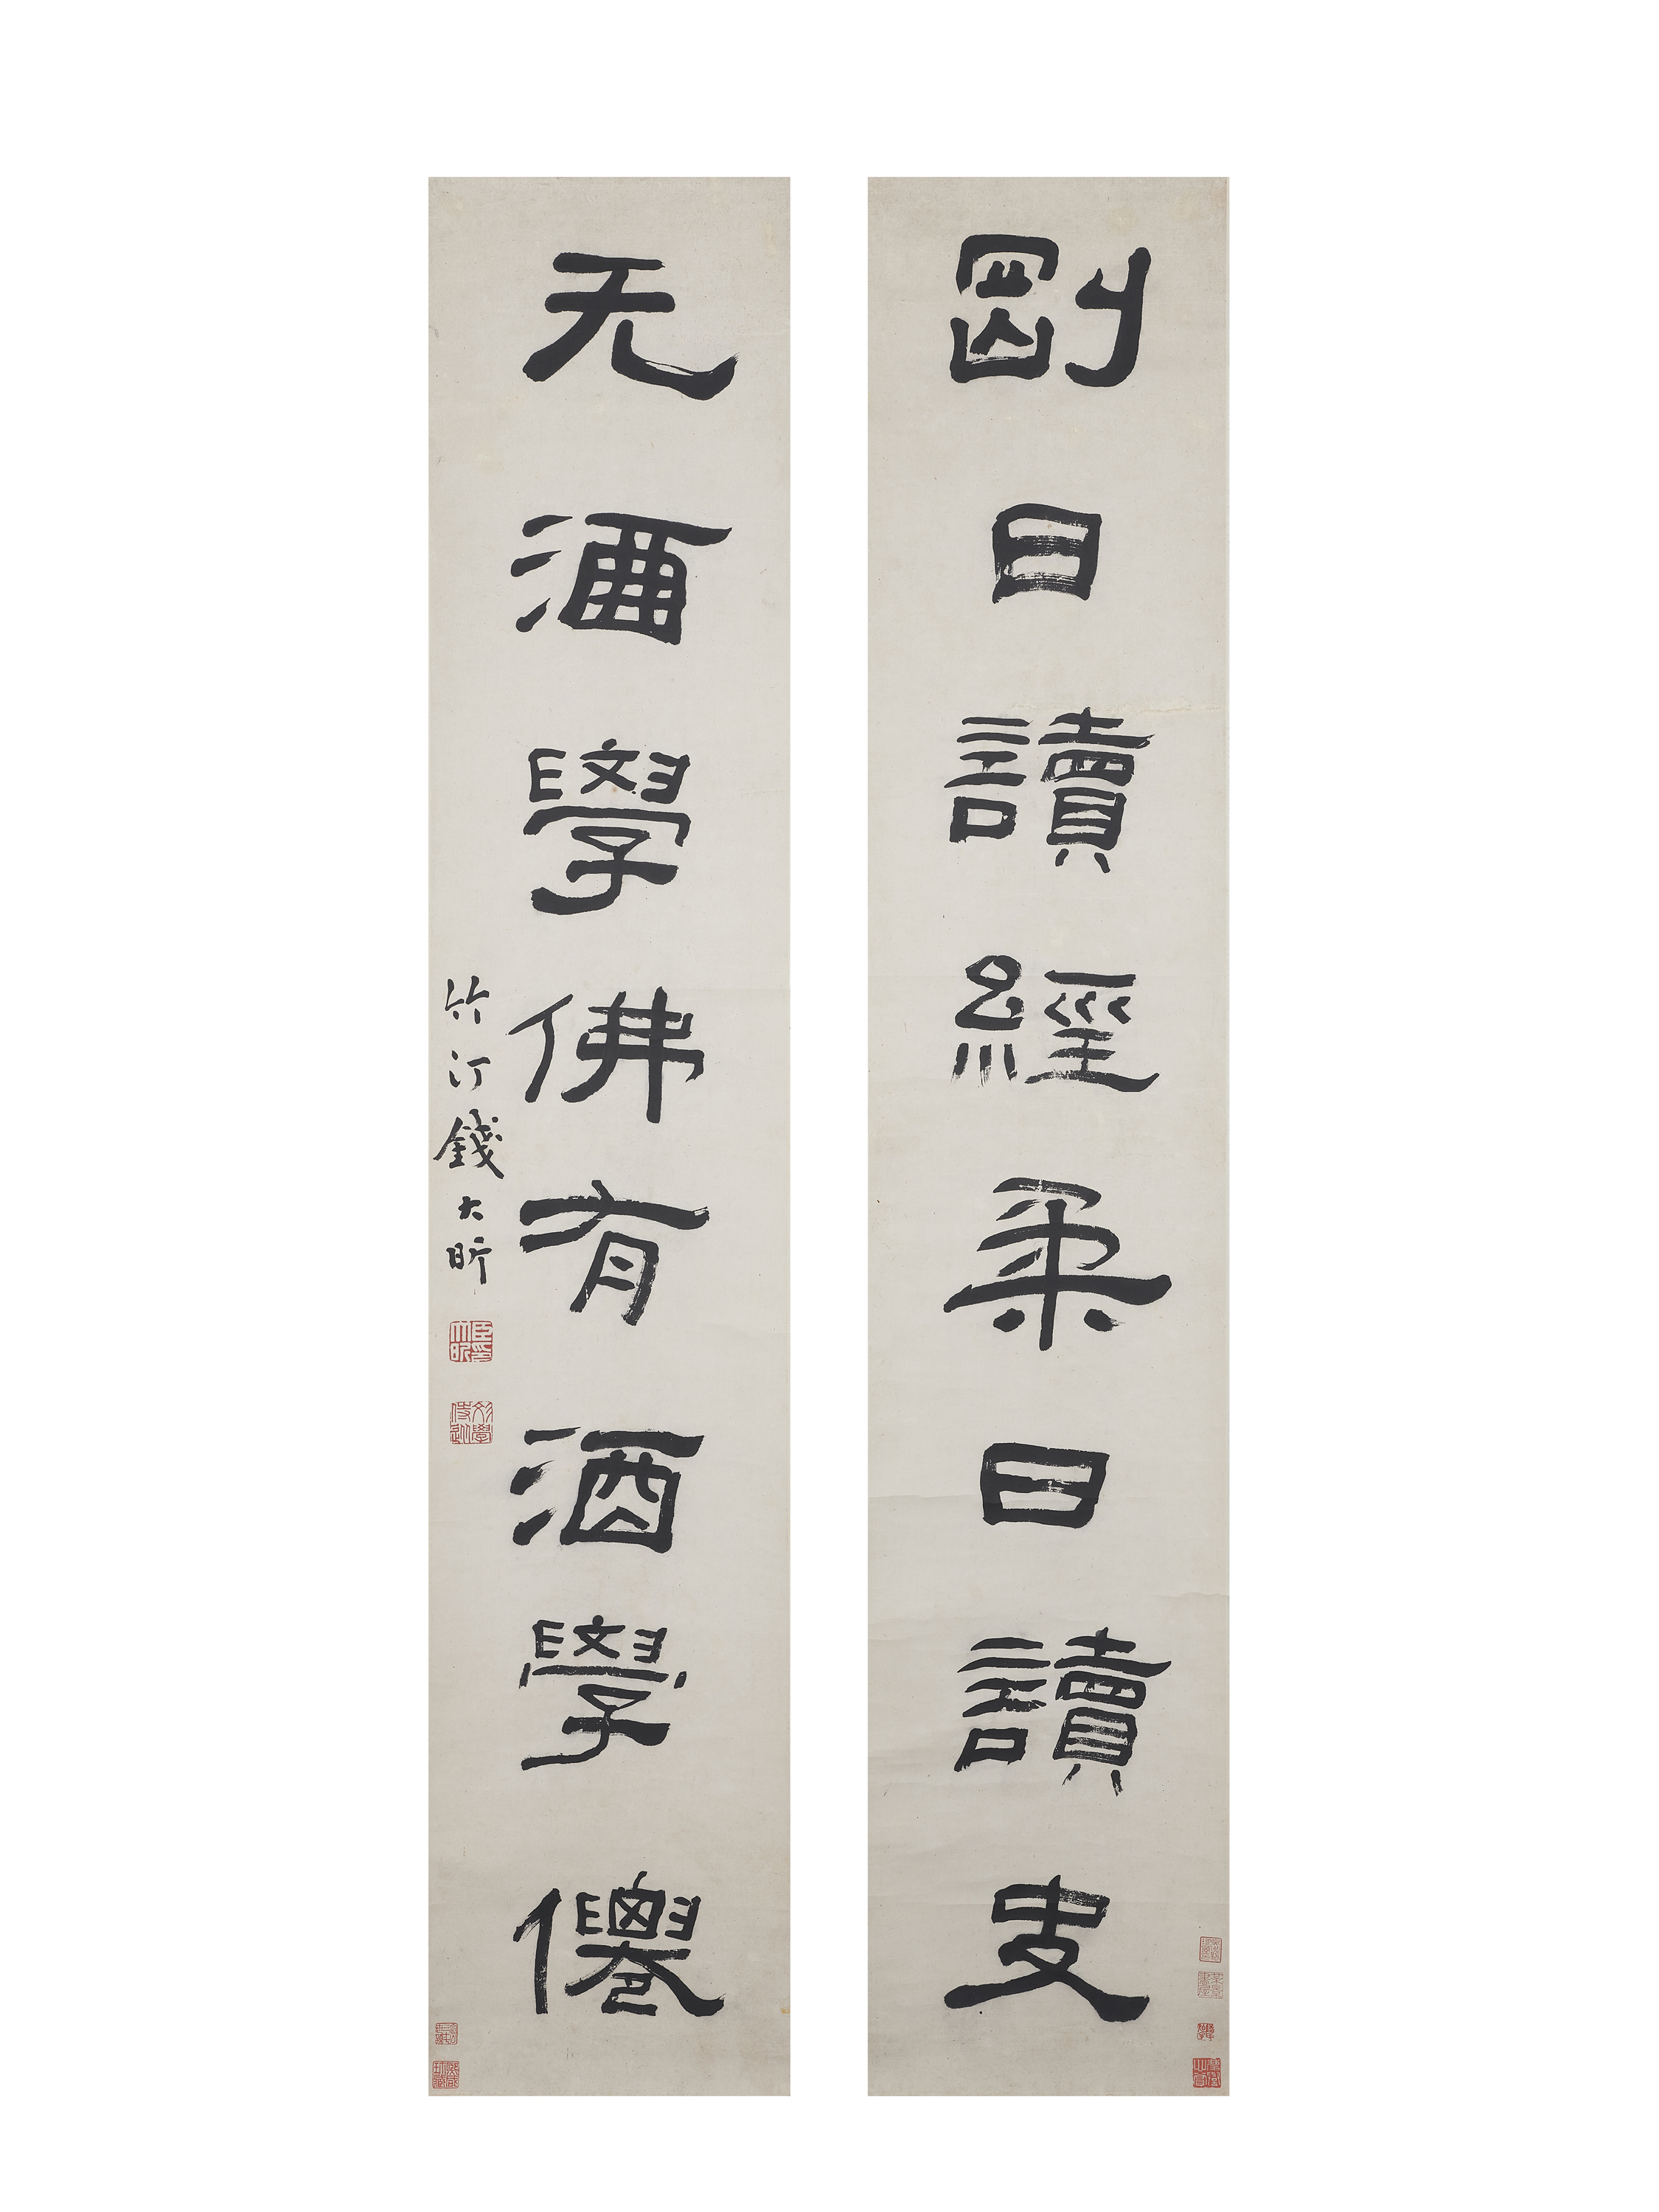 剛日讀經柔日讀史
无酒學佛有酒學僊
竹汀錢大昕